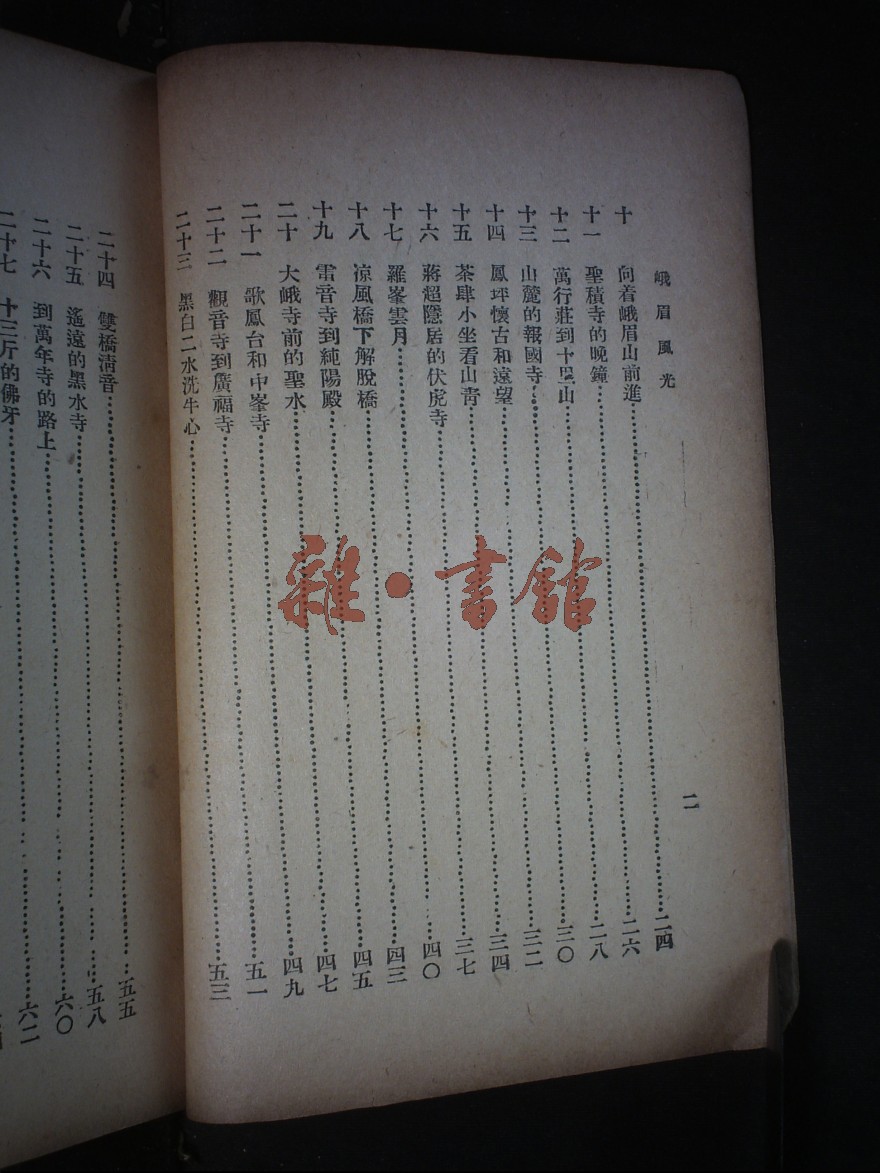 峨眉風光
二
十 向着峨眉山前進……二四
十一 聖積寺的晚鐘……二六
十二 萬行莊到十里山……二八
十三 山麓的報國寺……三〇
十四 鳳坪懷古和遠望……三二
十五 茶肆小坐看山青……三四
十六 蔣超隱居的伏虎寺……三七
十七 羅峯雲月……四〇
十八 凉風橋下解脫橋……四三
十九 雷音寺到純陽殿……四五
二十 大峨寺前的聖水……四七
二十一 歌鳳台和中峯寺……四九
二十二 觀音寺到廣福寺……五一
二十三 黑白二水洗牛心……五三
二十四 雙橋清音……五五
二十五 遙遠的黑水寺……五八
二十六 到萬年寺的路上……六〇
二十七 十三斤的佛牙……六二
雜·書館